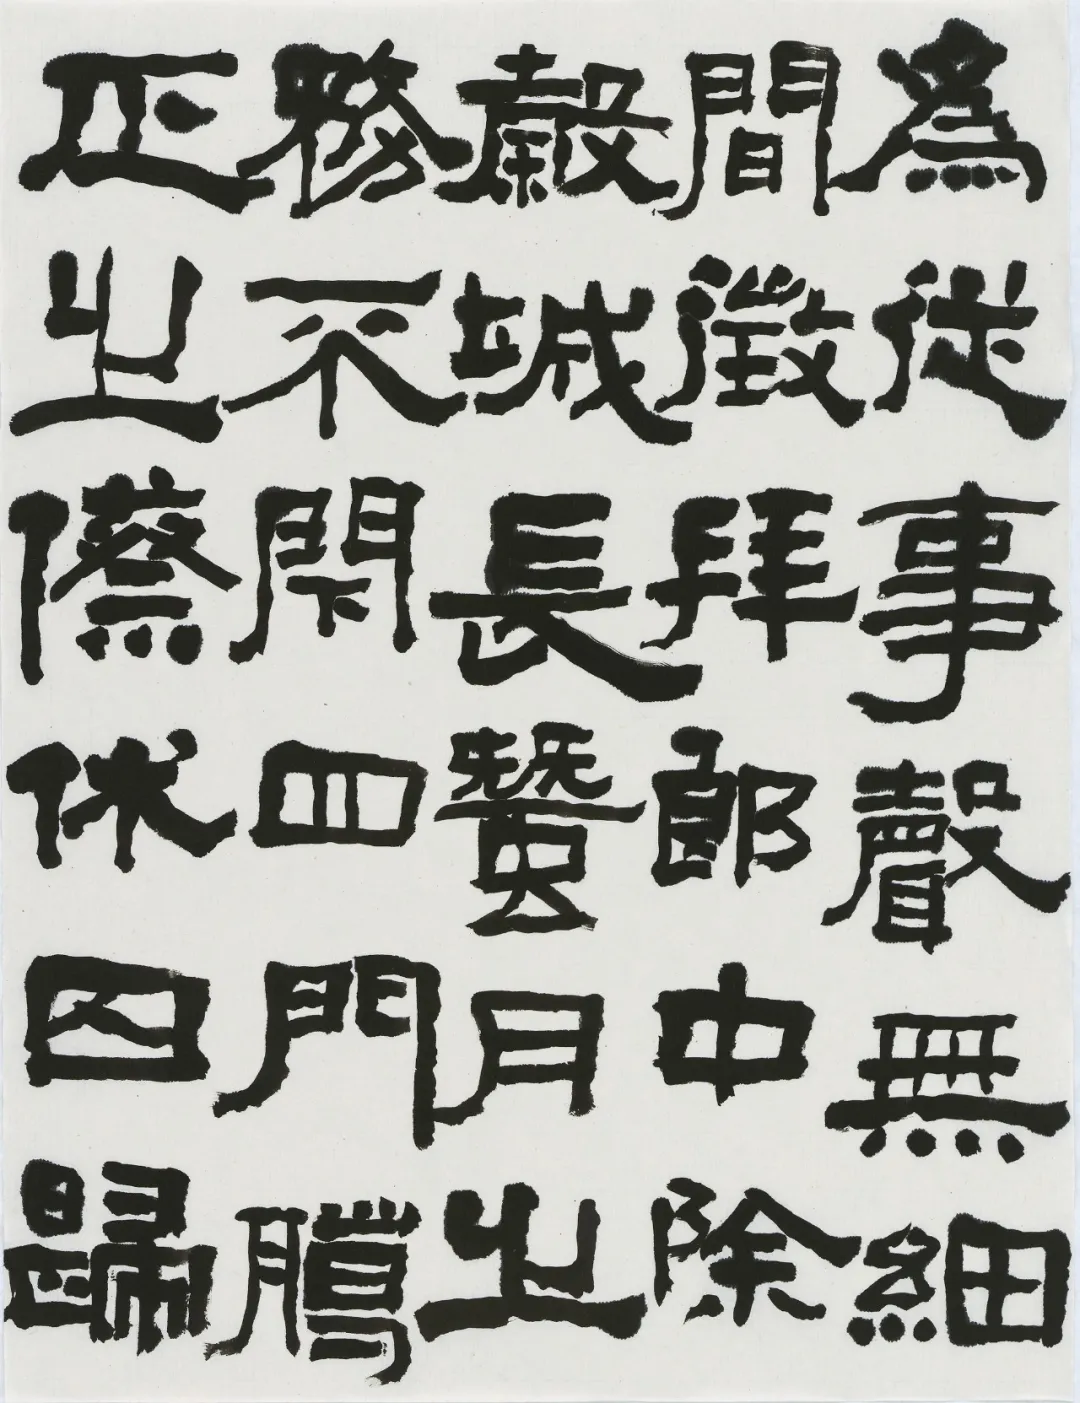 為從事聲無細
間徵拜郎中除
穀城長蠶月之
務不閇四門臈
正之傺休囚歸